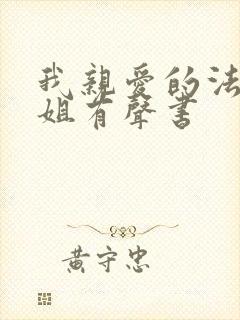 我親愛的法
姐有聲書
黃守忠